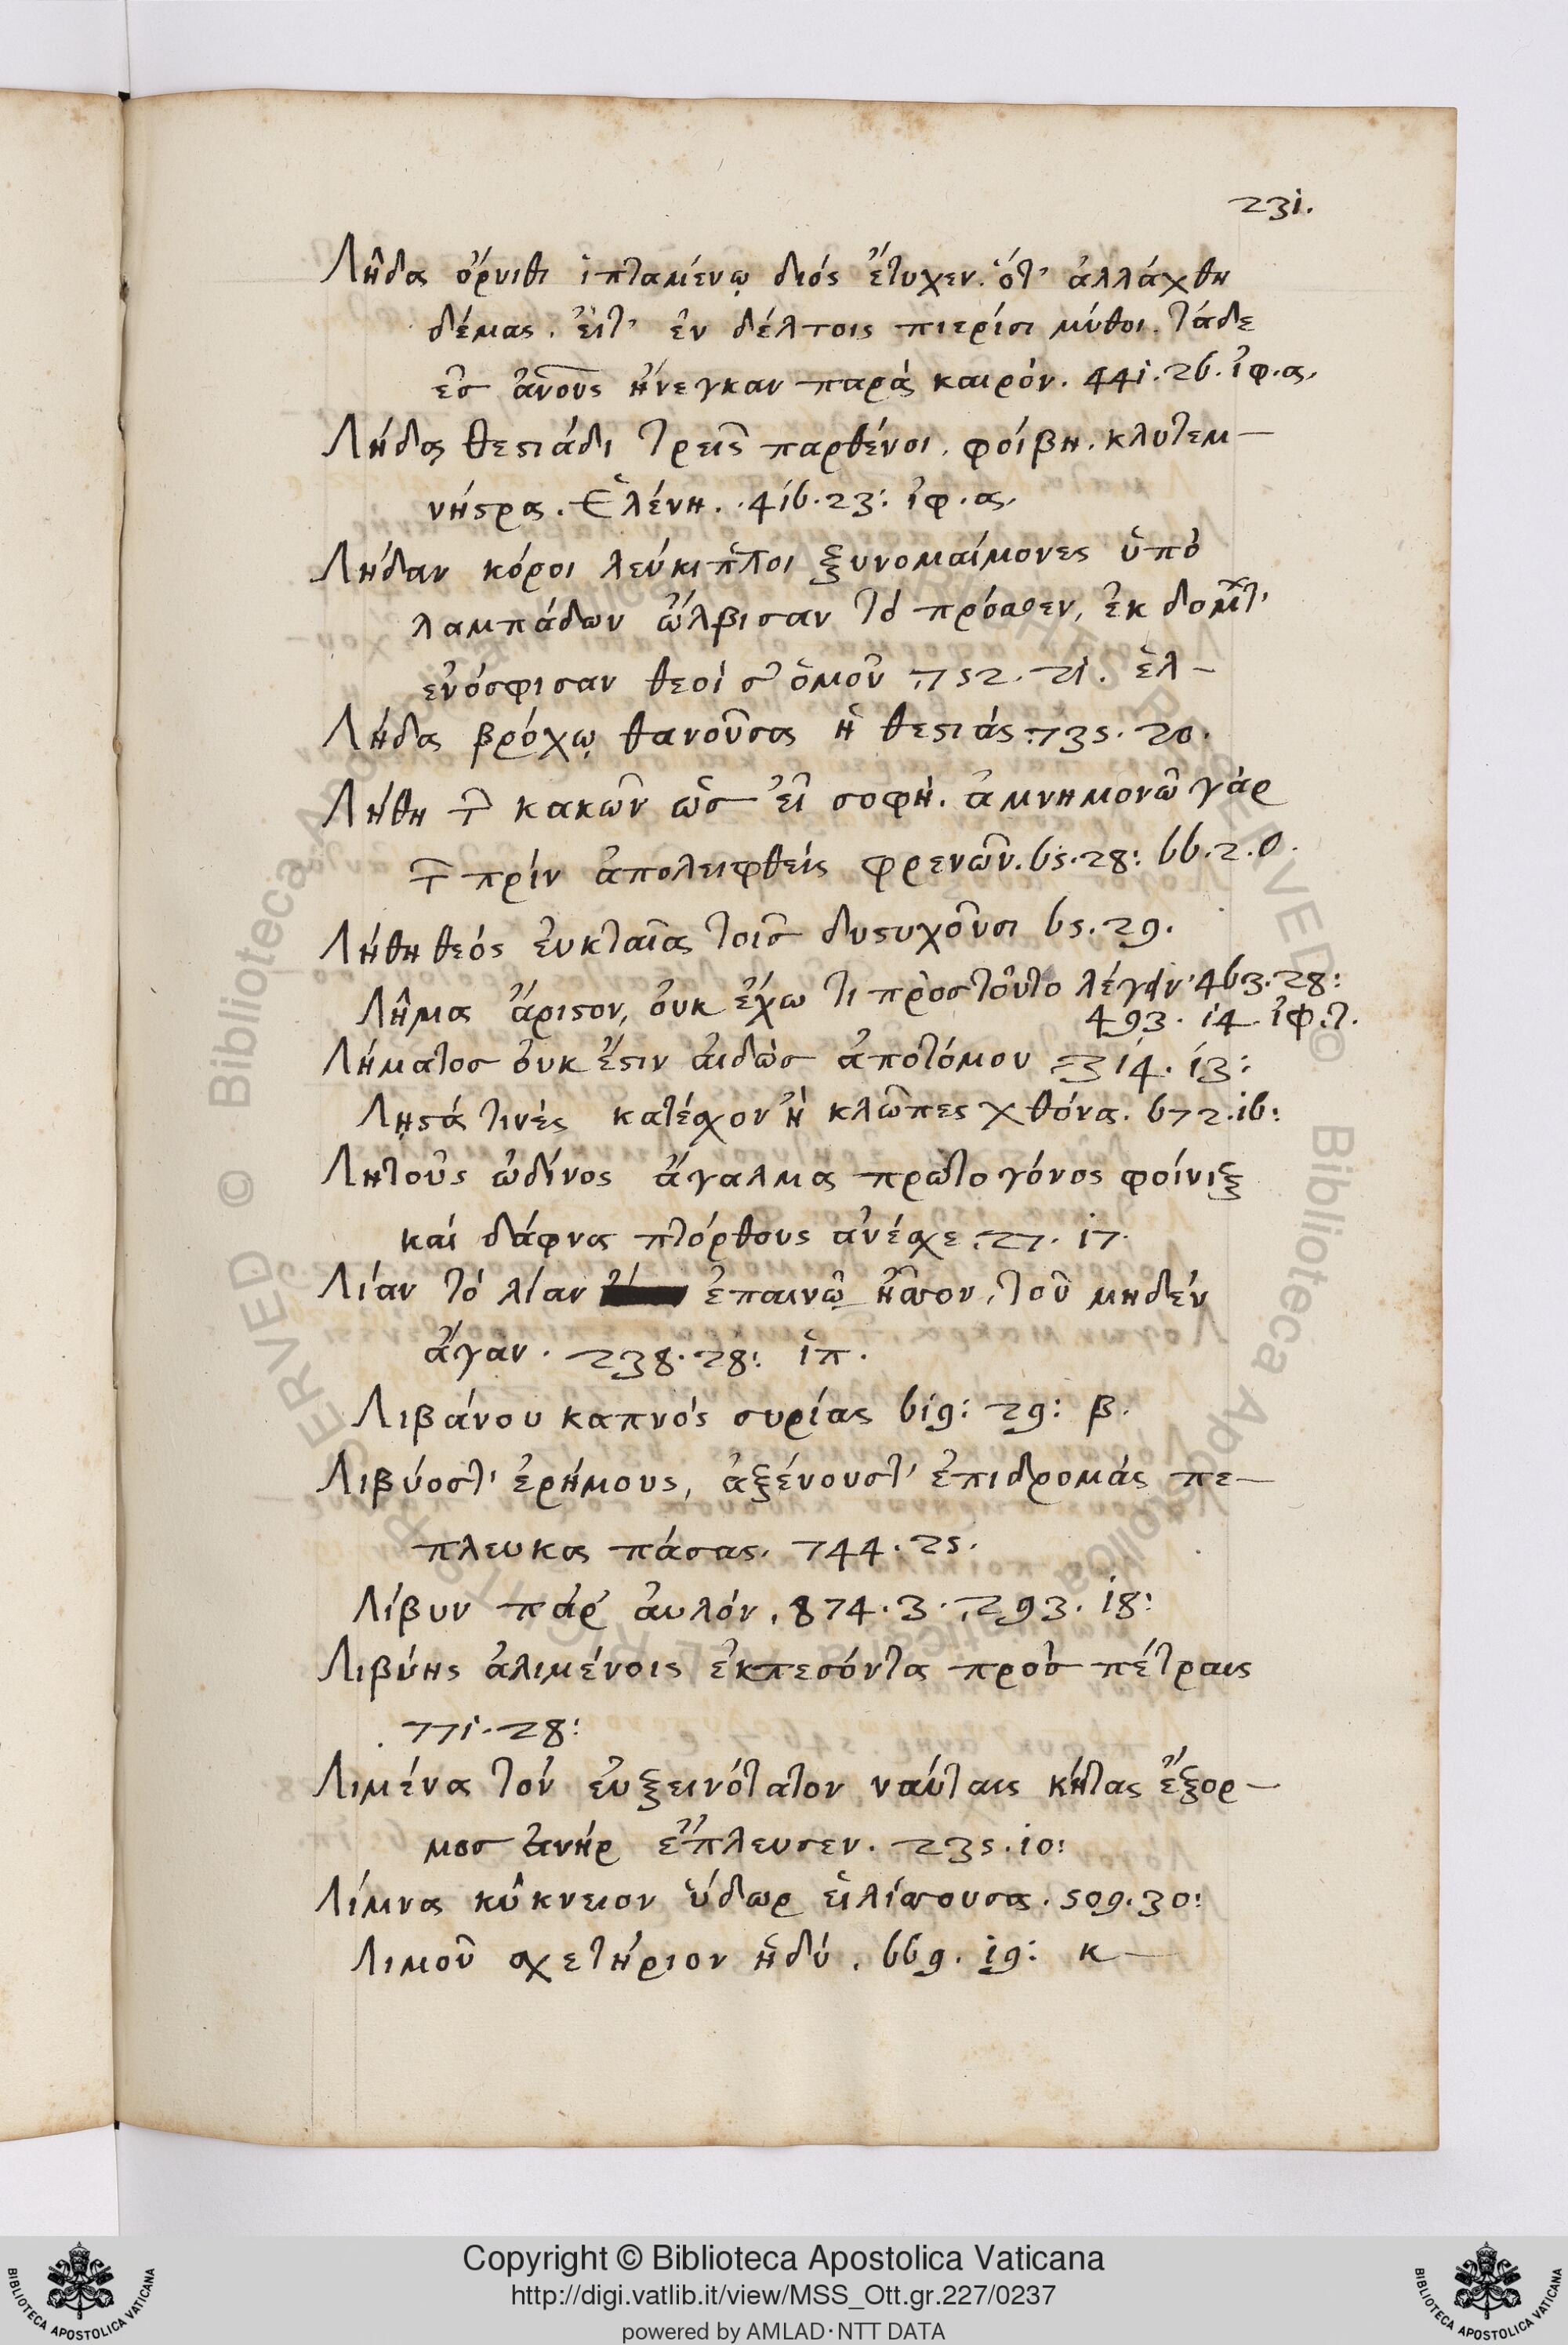 231.
Λῆδα ὄρνιθι ἱπταμένῳ διός ἔτυχεν. ὅτ' ἀλλάχθη
δέμας. εἴτ' ἐν δέλτοις πιερίσι μύθοι. τάδε
ἐσ ἀνους ἤνεγκαν παρά καιρόν. 441. 26. ἰφ. α.
Λήδᾳ θεστιάδι τρεῖς παρθένοι. φοίβη. κλυτεμ-
νήστρα. Ἑλένη. 416. 23: ἰφ. α.
Λήδαν κόροι λεύκιπποι ξυνομαίμονες ὑπό
λαμπάδων ὤλβισαν τό πρόσθεν, ἐκ
ἐνόσφισαν θεοί σ' ὁμοῦ. 752. 21. ἑλ-
Λήδα βρόχῳ θανοῦσα ἡ θεστιάς. 735. 20.
Λήθη τ̃ κακῶν ὡσ εἶ σοφή. ἀμνημονῶ γάρ
τ̃ πρίν ἀπολειφθείς φρενῶν. 65. 28: 66. 2. ο.
Λήθη θεός εὐκταῖα τοῖσ δυστυχοῦσι 65. 29.
Λῆμα ἄριστον, οὐκ ἔχω τι πρὸς τοῦτο λέγειν. 463. 28:
493. 14. ἰφ. τ.
Λήματοσ οὐκ ἔστιν αἰδὼσ ἀποτόμου 314. 13:
Λῃστά τινές κατέσχον ἢ κλῶπες χθόνα. 672. 16:
Λητοῦς ὠδῖνος ἄγαλμα πρωτογόνος φοίνιξ
καί δάφνα πτόρθους ἀνέσχε. 27. 17.
Λίαν τό λίαν ἐπαινῶ ἧσσον, τοῦ μηδέν
ἄγαν. 238. 28: ἱπ.
Λιβάνου καπνός συρίας 619: 29: β.
Λιβύοστ' ἐρήμους, ἀξένουστ' ἐπιδρομάς πε-
πλευκα πάσας. 744. 25.
Λίβυν πάρ αὐλόν. 874. 3. 293. 18:
Λιβύης ἀλιμένοις ἐκπεσόντα πρόσ πέτραις
771. 28:
Λιμένα τόν εὐξεινότατον ναύταις κήτας ἔξορ-
μοσ ἀνήρ ἔπλευσεν. 235. 10:
Λίμνα κύκνειον ὕδωρ εἱλίσσουσα. 509. 30:
Λιμοῦ σχετήριον ἡδύ. 669. 19: κ-
Copyright © Biblioteca Apostolica Vaticana
http://digi.vatlib.it/view/MSS_Ott.gr.227/0237
powered by AMLAD·NTT DATA
BIBLIOTECA APOSTOLICA VATICANA
BIBLIOTECA APOSTOLICA VATICANA